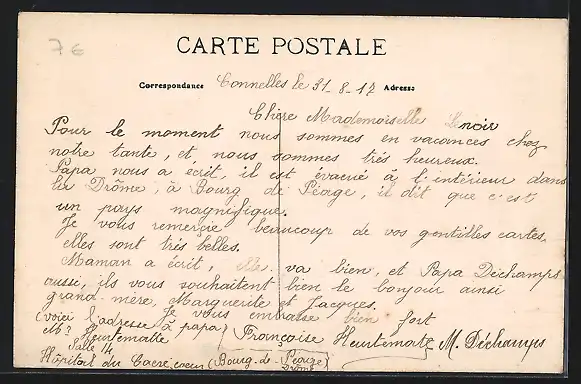 7 €
CARTE POSTALE
Correspondance Connelles le 31-8-17 Adresse
Chère Mademoiselle Lenoir
Pour le moment nous sommes en vacances chez
notre tante, et nous sommes très heureux.
Papa nous a écrit, il est évacué à l'intérieur dans
la Drôme, à Bourg de Péage, il dit que c'est
un pays magnifique.
Je vous remerçie beaucoup de vos gentilles cartes,
elles sont très belles.
Maman a écrit, elle va bien, et Papa Déchamps
aussi, ils vous souhaitent bien le bonjour ainsi
grand-mère, Marguerite et Jacques.
Je vous embrasse bien fort
(voici l'adresse à papa)
Françoise Heurtematte M. Déchamps
Mr Heurtematte
Salle 14
Hôpital du Sacré coeur (Bourg-de-Péage)
Drôme